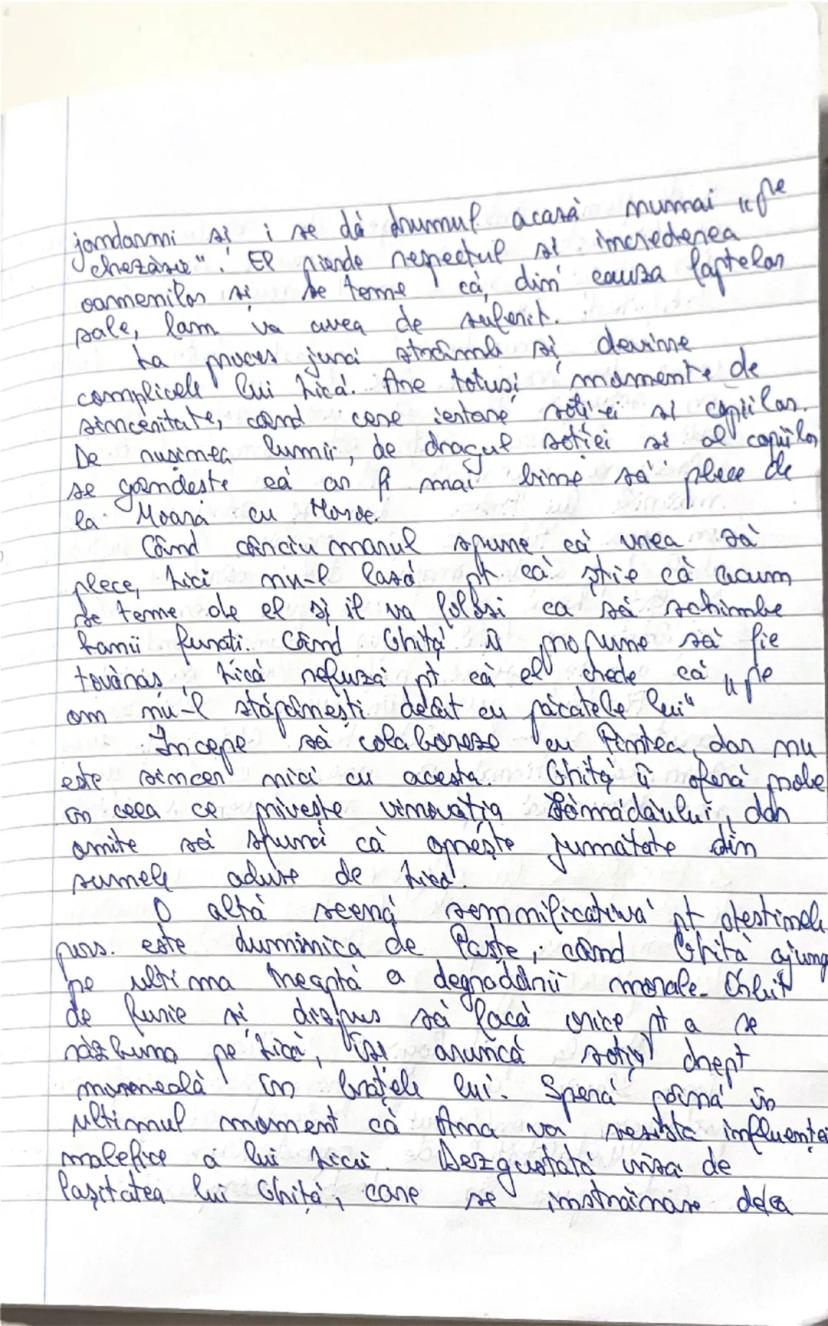 jandarmi și i se dă drumul acasă numai „pe
chezășie". El pierde respectul și increderea
oamenilor și se teme că, din cauza faptelor
sale, fam va avea de suferit.
La proces jură strâmb și devine
complicele lui Lică. Are totuși momente de
sinceritate, când cere iertare soției și copiilor.
De rușinea lumii, de dragul soției și al copiilor
se gândește că ar fi mai bine să plece de
la Moara cu Noroc.
Când cârciumarul spune că vrea să
plece, Lică nu-l lasă pt că știe că acum
se teme de el și il va folosi ca să schimbe
banii furați. Când Ghiță îi propune să fie
tovăraș, Lică refuză pt că el crede că „pe
om nu-l stăpânești decât cu păcatele lui"
Începe să colaboreze cu Pintea, dar nu
este sincer nici cu acesta. Ghiță îi oferă probe
în ceea ce privește vinovăția Sămădăului, dar
omite să spună că oprește jumătate din
sumele aduse de Lică.
O altă scenă semnificativă pt destinele
pers. este duminica de Paște, când Ghiță ajunge
pe ultima treaptă a degradării morale. Orbit
de furie și dispus să facă orice pt a se
răzbuna pe Lică, își aruncă soția drept
momeală în brațele lui. Speră până în
ultimul moment că Ana va rezista influenței
malefice a lui Lică. Dezgustată însă de
lașitatea lui Ghiță, care se instrăinase de ea